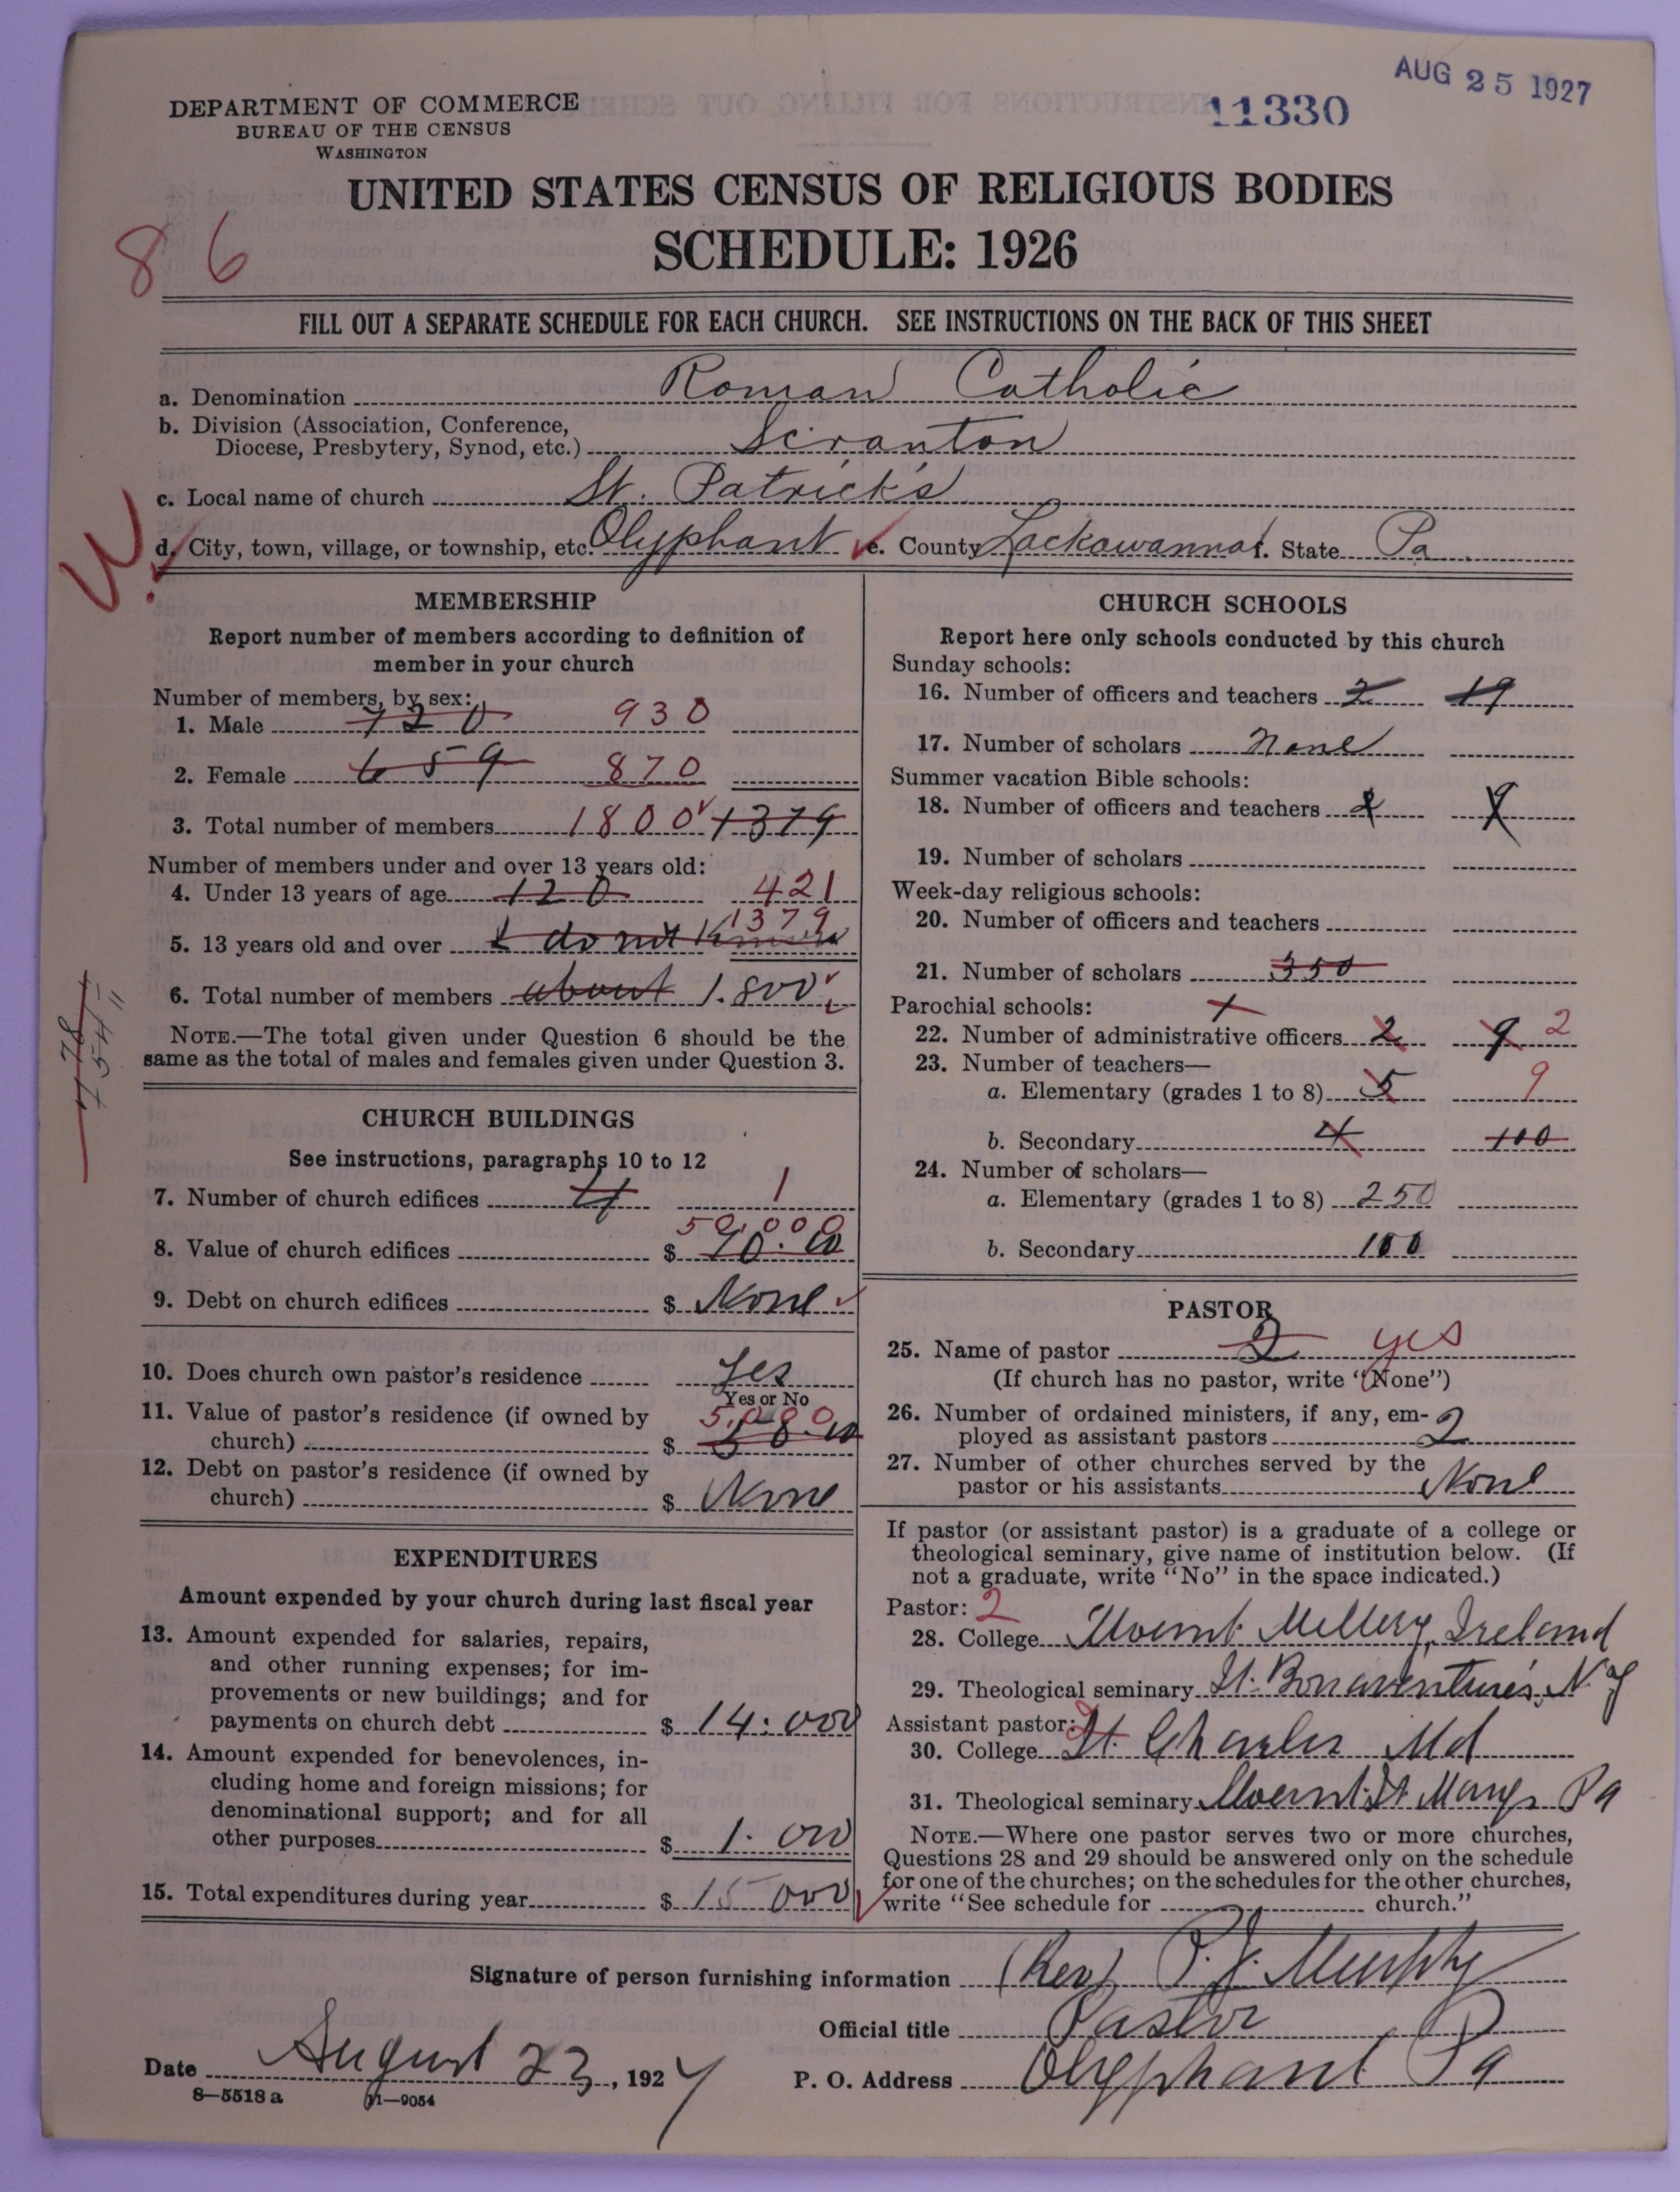 AUG 25 1927
11330
DEPARTMENT OF COMMERCE
BUREAU OF THE CENSUS
WASHINGTON
UNITED STATES CENSUS OF RELIGIOUS BODIES
SCHEDULE: 1926
86
FILL OUT A SEPARATE SCHEDULE FOR EACH CHURCH. SEE INSTRUCTIONS ON THE BACK OF THIS SHEET
a. Denomination Roman Catholic
b. Division (Association, Conference,
Diocese, Presbytery, Synod, etc.) Scranton
c. Local name of church St. Patrick's
d. City, town, village, or township, etc. Olyphant e. County Lackawanna f. State Pa
W
MEMBERSHIP
Report number of members according to definition of
member in your church
Number of members, by sex:
1. Male 720 930
2. Female 659 870
3. Total number of members 1800 1379
Number of members under and over 13 years old:
4. Under 13 years of age 120 421
5. 13 years old and over I do not know 1379
6. Total number of members about 1.800
NOTE.—The total given under Question 6 should be the
same as the total of males and females given under Question 3.
CHURCH BUILDINGS
See instructions, paragraphs 10 to 12
7. Number of church edifices 4 1
8. Value of church edifices $ 50,000
9. Debt on church edifices $ None
10. Does church own pastor's residence Yes
Yes or No
11. Value of pastor's residence (if owned by
church) $ 5,000
12. Debt on pastor's residence (if owned by
church) $ None
EXPENDITURES
Amount expended by your church during last fiscal year
13. Amount expended for salaries, repairs,
and other running expenses; for im-
provements or new buildings; and for
payments on church debt $ 14.000
14. Amount expended for benevolences, in-
cluding home and foreign missions; for
denominational support; and for all
other purposes $ 1.000
15. Total expenditures during year $ 15000
CHURCH SCHOOLS
Report here only schools conducted by this church
Sunday schools:
16. Number of officers and teachers 2 19
17. Number of scholars None
Summer vacation Bible schools:
18. Number of officers and teachers
19. Number of scholars
Week-day religious schools:
20. Number of officers and teachers
21. Number of scholars 350
Parochial schools:
22. Number of administrative officers 2 9 2
23. Number of teachers—
a. Elementary (grades 1 to 8) 5 9
b. Secondary 4 100
24. Number of scholars—
a. Elementary (grades 1 to 8) 250
b. Secondary 100
PASTOR
25. Name of pastor 2 yes
(If church has no pastor, write "None")
26. Number of ordained ministers, if any, em-
ployed as assistant pastors 2
27. Number of other churches served by the
pastor or his assistants None
If pastor (or assistant pastor) is a graduate of a college or
theological seminary, give name of institution below. (If
not a graduate, write "No" in the space indicated.)
Pastor: 2
28. College Mount Mellery, Ireland
29. Theological seminary St. Bonaventure's, N.Y
Assistant pastor:
30. College St. Charles Md
31. Theological seminary Mount St Marys Pa
NOTE.—Where one pastor serves two or more churches,
Questions 28 and 29 should be answered only on the schedule
for one of the churches; on the schedules for the other churches,
write "See schedule for church."
Signature of person furnishing information (Rev) P. J. Murphy
Official title Pastor
Date August 23, 1927 P. O. Address Olyphant Pa
8—5518 a 11—9054